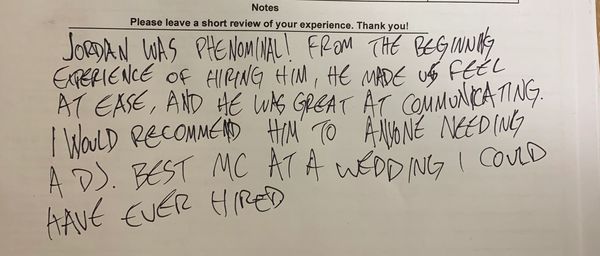 Notes
Please leave a short review of your experience. Thank you!
JORDAN WAS PHENOMINAL! FROM THE BEGINNING
EXPERIENCE OF HIRING HIM, HE MADE US FEEL
AT EASE, AND HE WAS GREAT AT COMMUNICATING.
I WOULD RECOMMEND HIM TO ANYONE NEEDING
A DJ. BEST MC AT A WEDDING I COULD
HAVE EVER HIRED